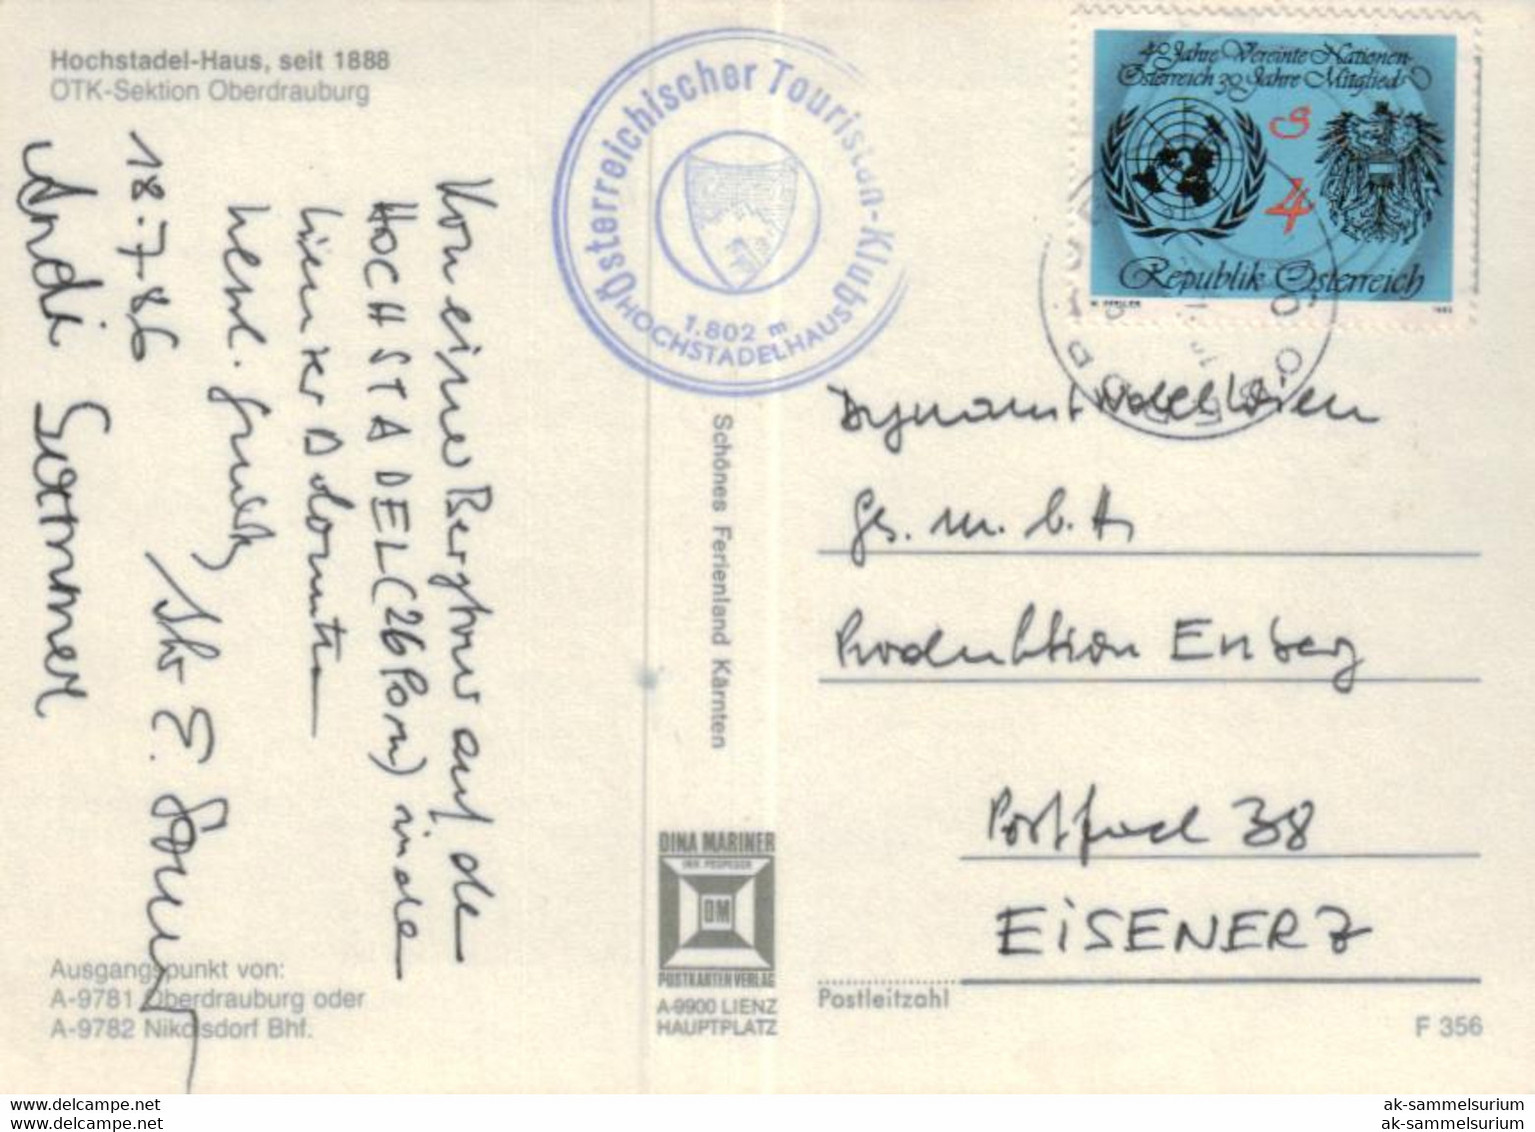 Hochstadel-Haus, seit 1888
ÖTK-Sektion Oberdrauburg
Von einer Bergtour auf de
HOCHSTADEL (26 Pers) in de
Lienzer Dolomiten
herzl.
18.7.86
Andi Sommer
Ausgangspunkt von:
A-9781 Oberdrauburg oder
A-9782 Nikolsdorf Bhf.
Österreichischer Touristen-Klub
1.802 m
HOCHSTADELHAUS
Schönes Ferienland Kärnten
DINA MARINER
DM
POSTKARTENVERLAG
A-9900 LIENZ
HAUPTPLATZ
40 Jahre Vereinte Nationen-
Österreich 30 Jahre Mitglied
S
4
Republik Österreich
Dynamit Nobel Wien
Ges. m. b. H
Produktion Erzberg
Postfach 38
EISENERZ
Postleitzahl
F 356
own-style.com
own-style.com
ak-sammelsurium
ak-sammelsurium